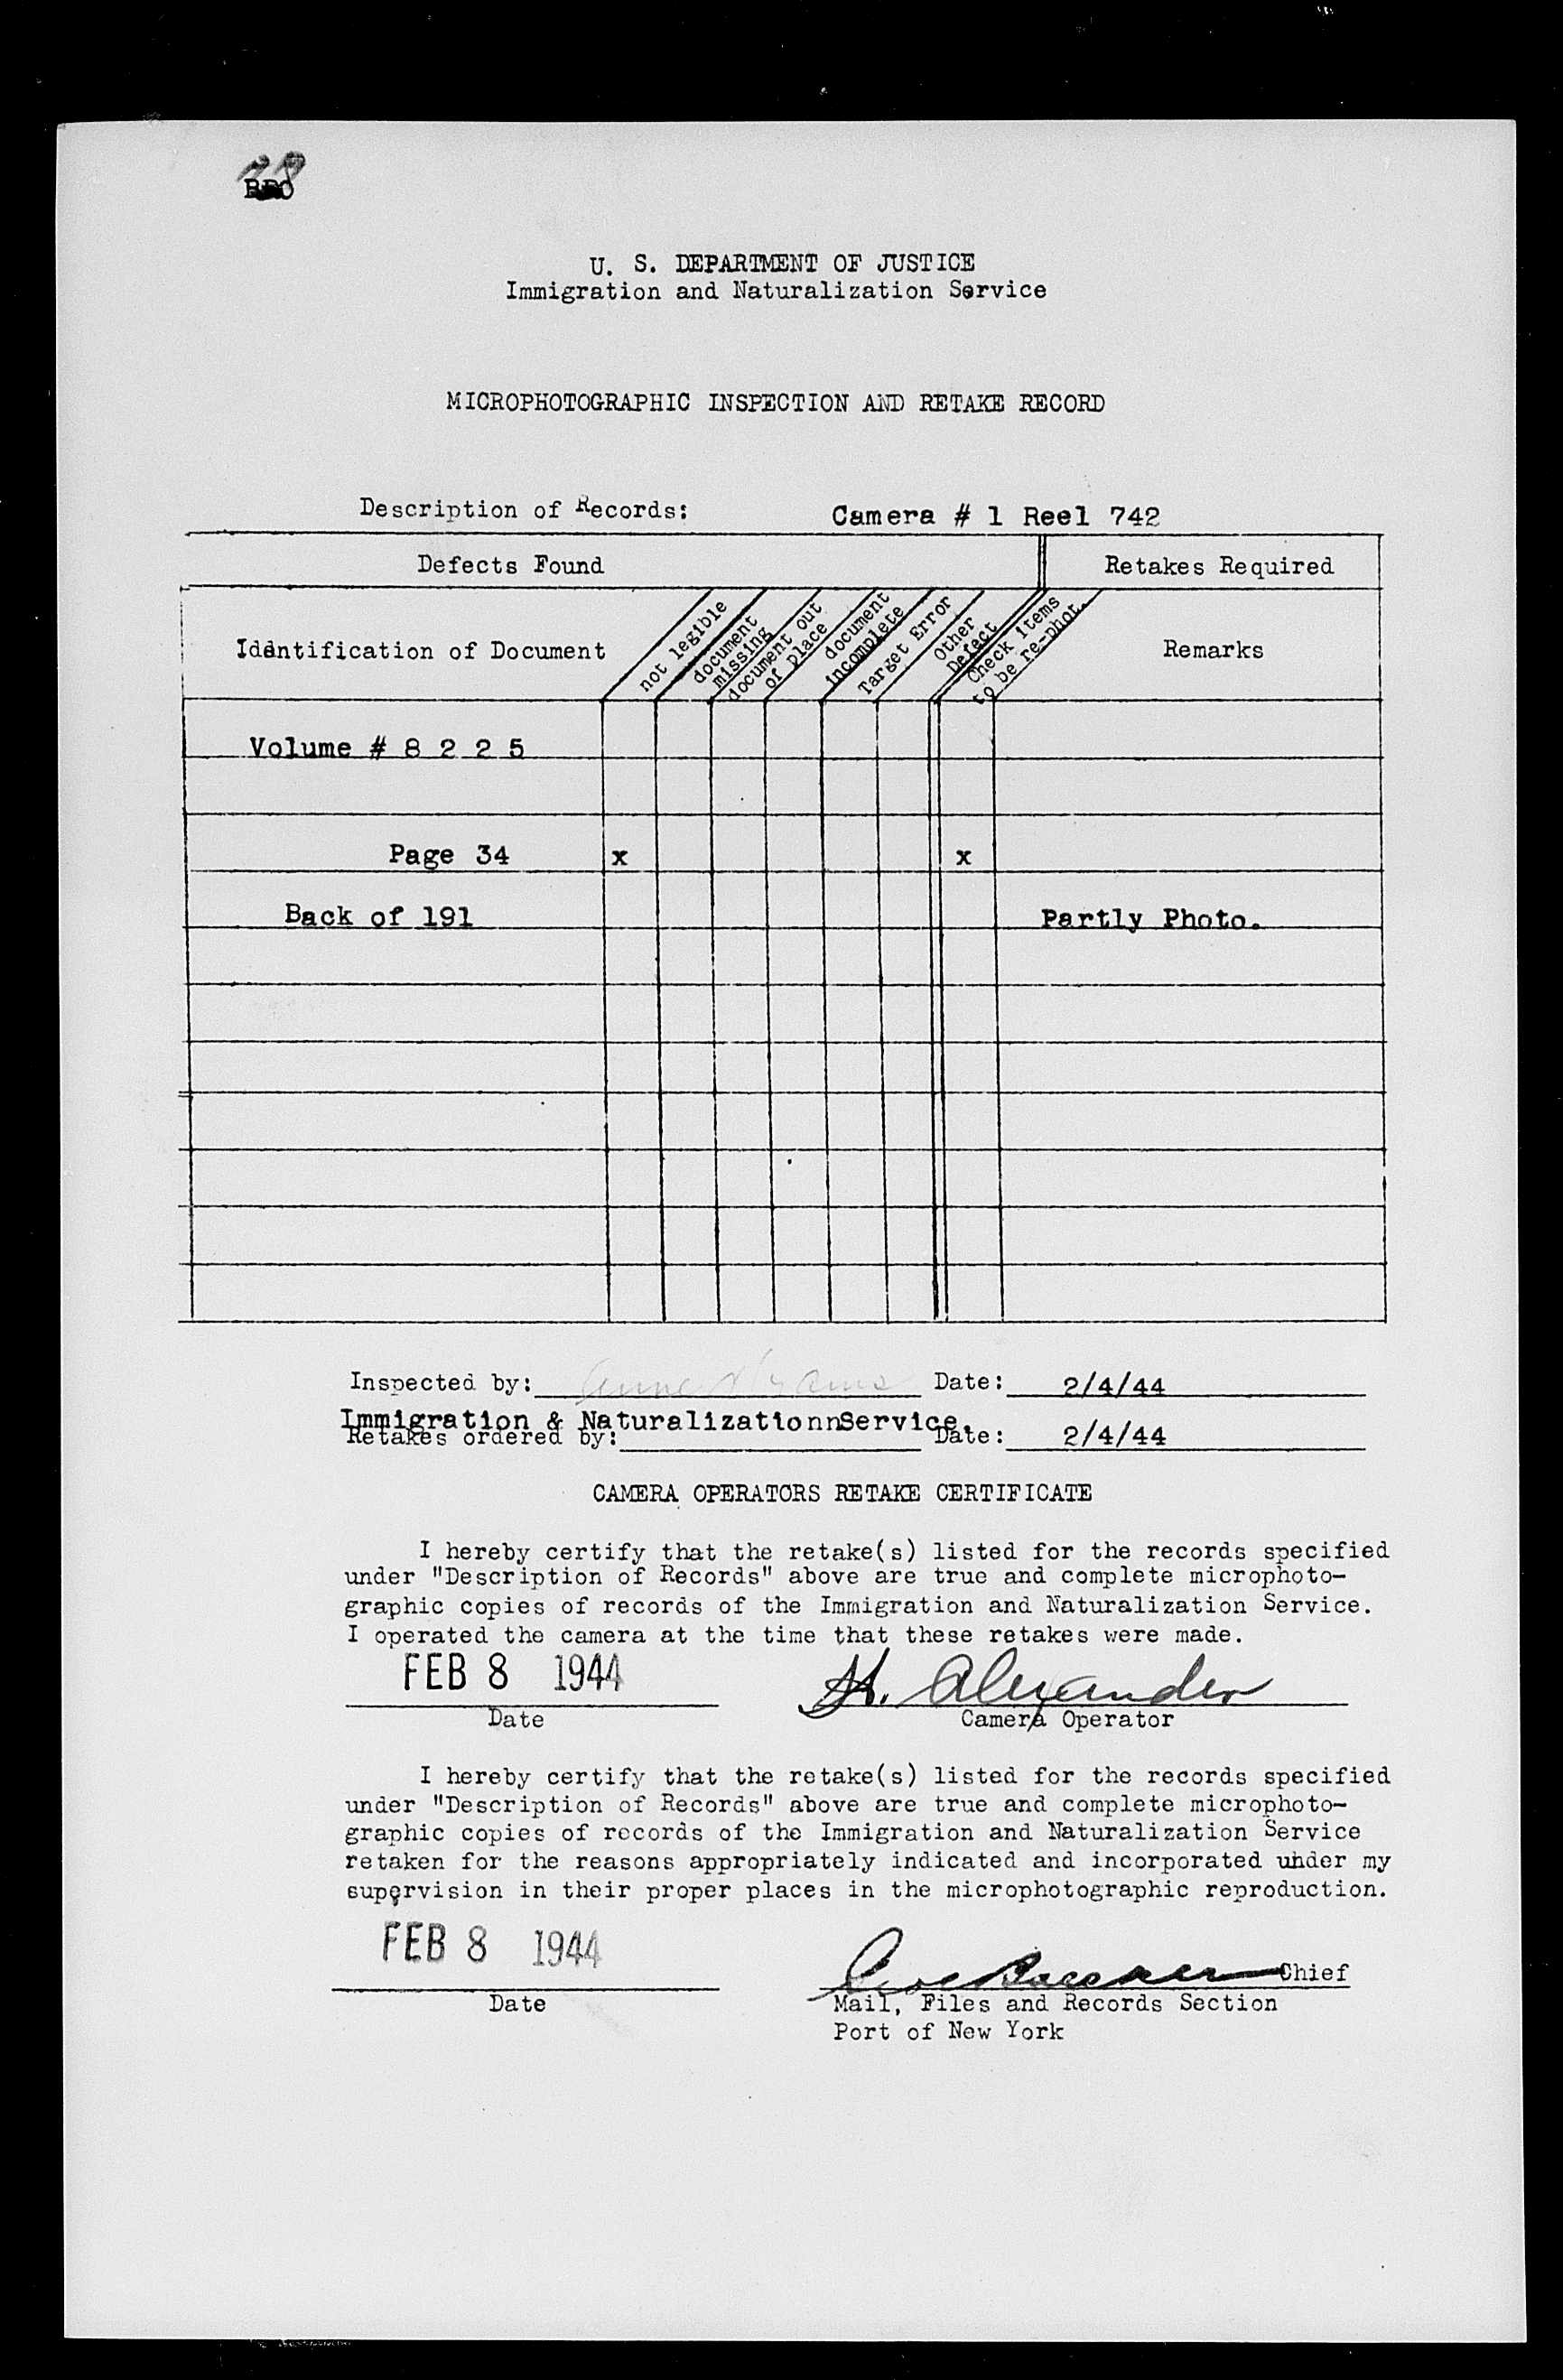 U. S. DEPARTMENT OF JUSTICE
Immigration and Naturalization Service
MICROPHOTOGRAPHIC INSPECTION AND RETAKE RECORD
Description of Records: Camera # 1 Reel 742
Defects Found Retakes Required
Identification of Document
not legible
document missing
document out of place
document incomplete
Target Error
Other Defect
Check items to be re-phot.
Remarks
Volume # 8 2 2 5
Page 34 x x
Back of 191 Partly Photo.
Inspected by: Date: 2/4/44
Immigration & NaturalizationnService.
Retakes ordered by: Date: 2/4/44
CAMERA OPERATORS RETAKE CERTIFICATE
I hereby certify that the retake(s) listed for the records specified
under "Description of Records" above are true and complete microphoto-
graphic copies of records of the Immigration and Naturalization Service.
I operated the camera at the time that these retakes were made.
FEB 8 1944 H. Alexander
Date Camera Operator
I hereby certify that the retake(s) listed for the records specified
under "Description of Records" above are true and complete microphoto-
graphic copies of records of the Immigration and Naturalization Service
retaken for the reasons appropriately indicated and incorporated under my
supervision in their proper places in the microphotographic reproduction.
FEB 8 1944
Chief
Date Mail, Files and Records Section
Port of New York